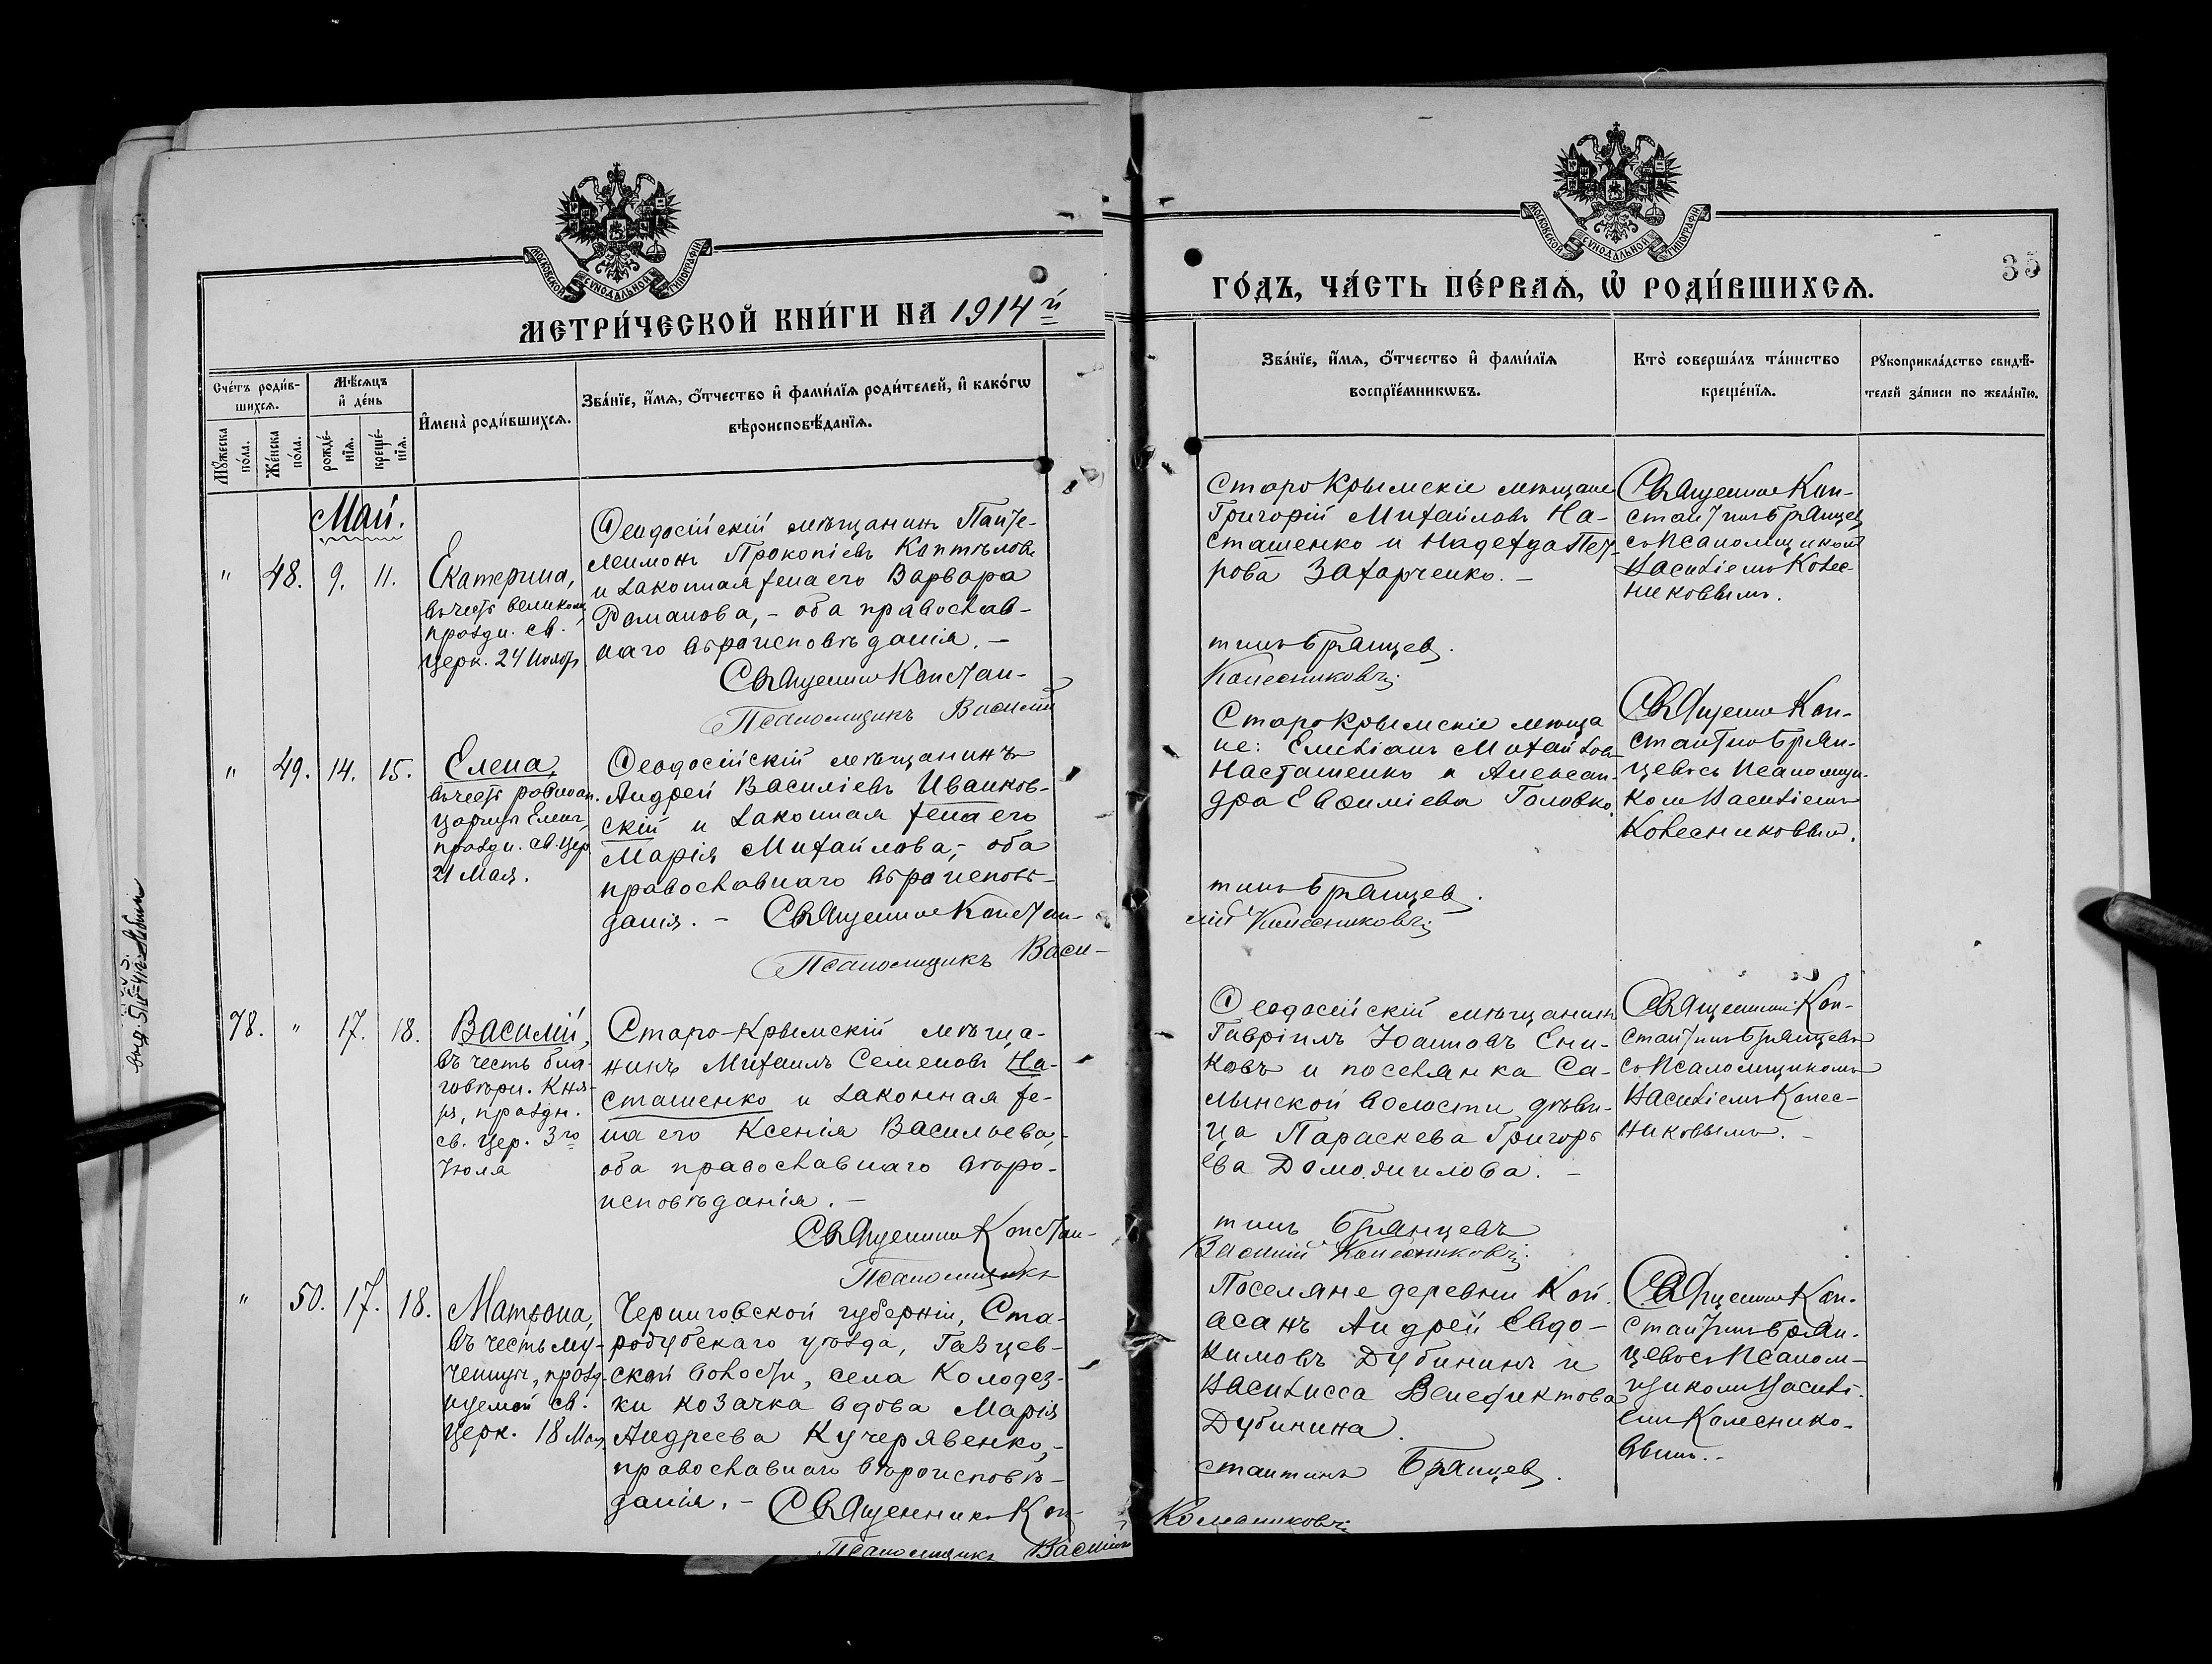 МОСКОВСКОЙ СѴНОДАЛЬНОЙ ТИПОГРАФІИ
МЕТРИ́ЧЕСКОЙ КНИ́ГИ НА 1914й
Сче́тъ роди́в-
шихсѧ.
Мѣ́сѧцъ
и҆ де́нь
Мꙋ́жеска
по́ла.
Же́нска
по́ла.
рожде́-
нїѧ.
креще́-
нїѧ.
И҆мена̀ роди́вшихсѧ.
Зва́нїе, и҆́мѧ, ѻ҆́тчество и҆ фами́лїѧ роди́телей, и҆ како́гѡ
вѣроисповѣ́данїѧ.
Май.
" 48. 9. 11.
Екатерина,
въ честь великом.
праздн. св.
церк. 24 Ноябр
Ѳеодосійскій мѣщанинъ Панте-
леимонъ Прокопіевъ Коптѣловъ
и законная жена его Варвара
Романова, - оба православ-
наго вѣроисповѣданія. -
Священникъ Констан-
Псаломщикъ Василій
" 49. 14. 15.
Елена,
въ честь равноап.
царицы Елены
праздн. св. цер.
21 Мая.
Ѳеодосійскій мѣщанинъ
Андрей Василіевъ Иванков-
скій и законная жена его
Марія Михайлова, - оба
православнаго вѣроисповѣ-
данія. - Священникъ Констан-
Псаломщикъ Васи-
78. " 17. 18.
Василій,
въ честь бла-
говѣрн. Кня-
зя, праздн.
св. цер. 3го
Іюля
Старо-Крымскій мѣща-
нинъ Михаилъ Семеновъ На-
сташенко и законная же-
на его Ксенія Васильева, -
оба православнаго вѣро-
исповѣданія. -
Священникъ Констан-
Псаломщикъ
" 50. 17. 18.
Матрона,
въ честь му-
ченицы, празд-
нуемой св.
церк. 18 Мая
Черниговской губерніи, Ста-
родубскаго уѣзда,
ской волости, села Колодез-
ки козачка вдова Марія
Андреева Кучерявенко, -
православнаго вѣроисповѣ-
данія. - Священникъ Кон-
Псаломщикъ Василій
МОСКОВСКОЙ СѴНОДАЛЬНОЙ ТИПОГРАФІИ
35
ГО́ДЪ, ЧА́СТЬ ПЕ́РВАѦ, Ѡ҆ РОДИ́ВШИХСѦ.
Зва́нїе, и҆́мѧ, ѻ҆́тчество и҆ фами́лїѧ
воспрїе́мникѡвъ.
Кто̀ соверша́лъ та́инство
креще́нїѧ.
Рꙋкоприкла́дство свидѣ́-
телей за́писи по жела́нїю.
Старокрымскіе мѣщане
Григорій Михайловъ На-
сташенко и Надежда Пет-
рова Захарченко. -
тинъ Брянцев.
Колесниковъ
Священникъ Кон-
стантинъ Брянцев
съ Псаломщиком
Василіемъ Колес-
никовымъ.
Старокрымскіе мѣща
не: Емеліанъ Михайлов
Насташенко и Алексан-
дра Евѳиміева Головко.
тинъ Брянцев.
лій Колесниковъ
Священникъ Кон-
стантинъ Брян-
цевъ съ Псаломщи-
комъ Василіемъ
Колесниковым.
Ѳеодосійскій мѣщанинъ
Гавріилъ Іоанновъ Ени-
ковъ и поселянка Са-
лынской волости дѣви-
ца Параскева Григорь
ева
тинъ Брянцевъ
Василій Колесниковъ
Священникъ Кон-
стантинъ Брянцевъ
съ Псаломщикомъ
Василіемъ Колес-
никовымъ. -
Поселяне деревни Кой-
асанъ Андрей Евдо-
кимовъ Дубининъ и
Василисса Венедиктова
Дубинина.
стантинъ Брянцев.
Колесниковъ
Священникъ Кон-
стантинъ Брян-
цевъ съ Псалом-
щикомъ Васили-
емъ Колеснико-
вымъ. -